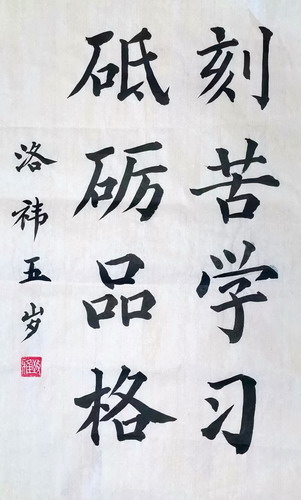 刻苦学习
砥砺品格
洛祎五岁